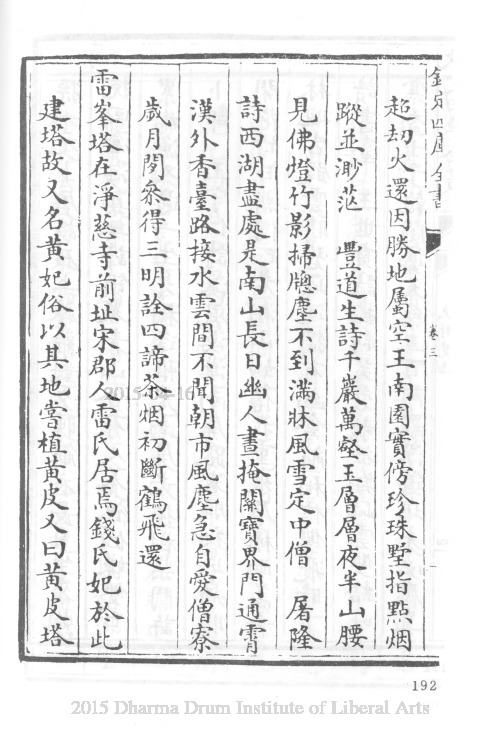 欽定四庫全書
卷三
起劫火還因勝地屬空王南園實傍珍珠墅指點烟
蹤並渺茫　豐道生詩千巖萬壑玉層層夜半山腰
見佛燈竹影掃牕塵不到滿牀風雪定中僧　屠隆
詩西湖盡處是南山長日幽人晝掩關寶界門通霄
漢外香臺路接水雲間不聞朝市風塵急自愛僧寮
歲月閒叅得三明詮四諦茶烟初斷鶴飛還
雷峯塔在淨慈寺前址宋郡人雷氏居焉錢氏妃於此
建塔故又名黃妃俗以其地嘗植黃皮又曰黃皮塔
192
2015 Dharma Drum Institute of Liberal Arts